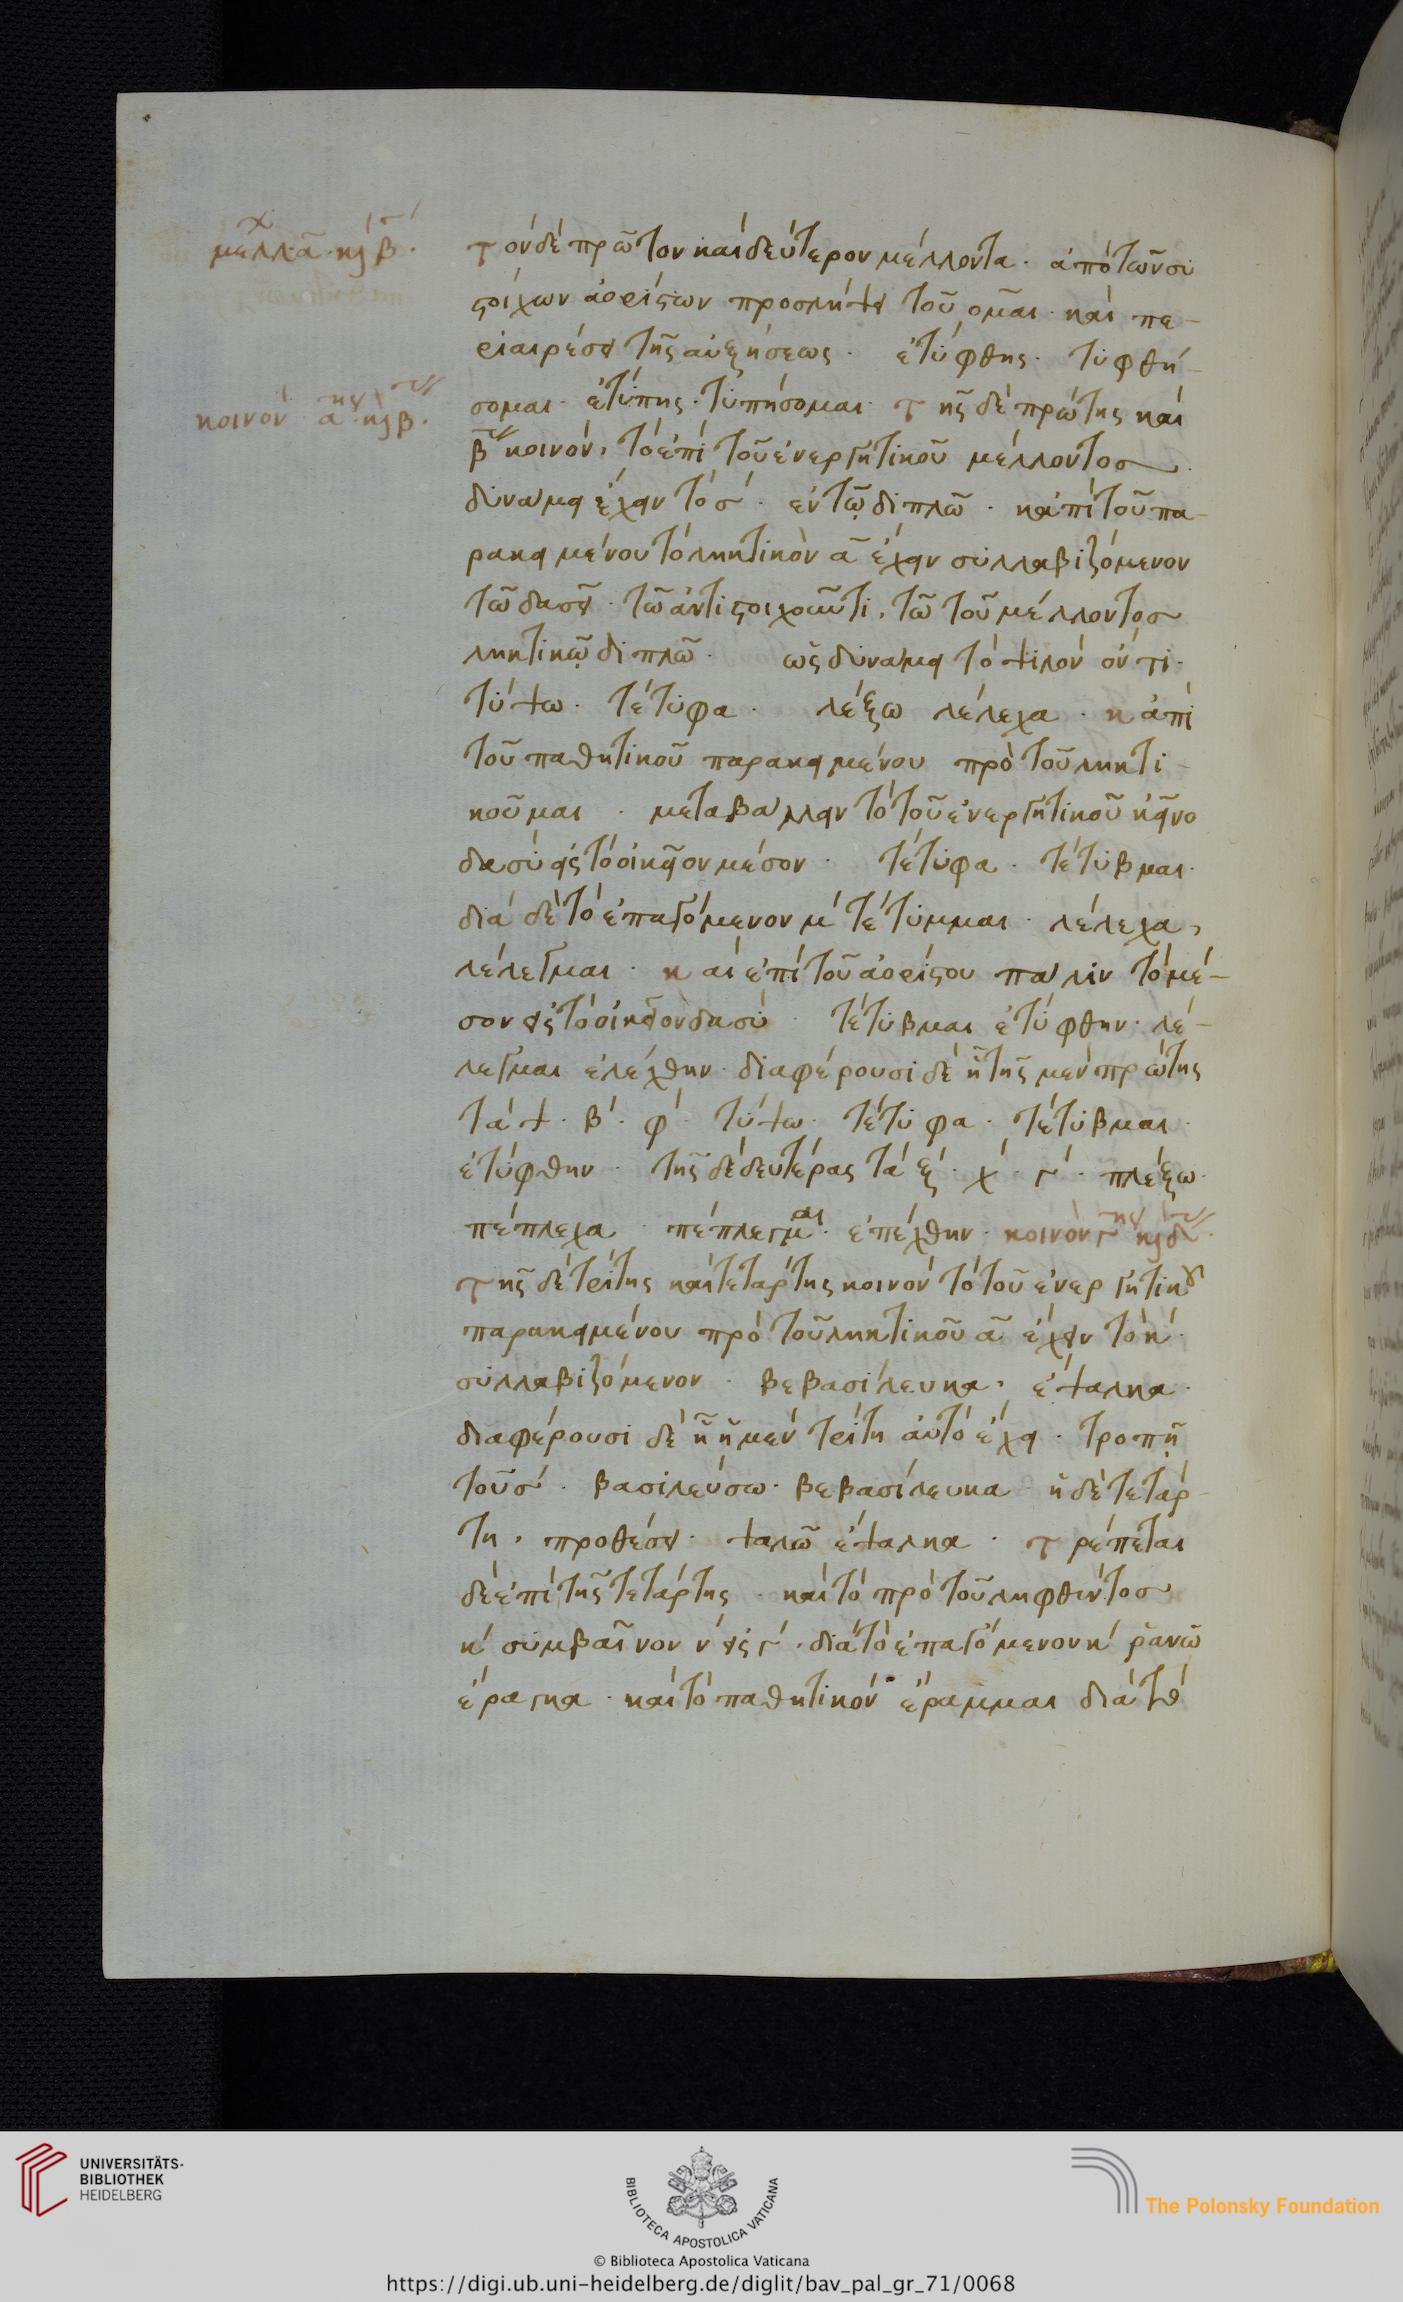 μελλ α κ β.
τὸν δὲ πρῶτον καὶ δεύτερον μέλλοντα· ἀπὸ τῶν συ
στοίχων ἀορίστων προσλήψει τοῦ ομαι· καὶ πε-
ριαιρέσει τῆς αὐξήσεως· ἐτύφθης· τυφθή-
σομαι· ἐτύπης· τυπήσομαι· τῆς δὲ πρώτης καὶ
κοινὸν α ης κ β ας.
β ας κοινὸν, τὸ ἐπὶ τοῦ ἐνεργητικοῦ μέλλοντος
δυνάμει ἔχειν τὸ σ· ἐν τῷ διπλῶ· κἀπὶ τοῦ πα-
ρακειμένου τὸ ληκτικὸν α ἔχειν συλλαβιζόμενον
τῶ δασεῖ· τῶ ἀντιστοιχοῦντι, τῶ τοῦ μέλλοντος
ληκτικῷ διπλῶ· ὡς δυνάμει τὸ ψιλὸν ὄντι·
τύψω· τέτυφα· λέξω λέλεχα· κἀπὶ
τοῦ παθητικοῦ παρακειμένου πρὸ τοῦ ληκτι-
κοῦ μαι· μεταβάλλειν τὸ τοῦ ἐνεργητικοῦ ἐκεῖνο
δασὺ εἰς τὸ οἰκεῖον μέσον· τέτυφα· τέτυβμαι·
διὰ δὲ τὸ ἐπαγόμενον μ τέτυμμαι· λέλεχα,
λέλεγμαι· καὶ ἐπὶ τοῦ ἀορίστου πάλιν τὸ μέ-
σον εἰς τὸ οἰκεῖον δασὺ· τέτυβμαι ἐτύφθην· λέ-
λεγμαι ἐλέχθην· διαφέρουσι δὲ ἧ τῆς μὲν πρώτης
τὰ ψ· β· φ· τύψω· τέτυφα· τέτυβμαι·
ἐτύφθην· τῆς δὲ δευτέρας τὰ ξ· χ· γ· πλέξω·
πέπλεχα· πέπλεγμαι· ἐπέχθην· κοινὸν γ ης κ δ ης.
τῆς δὲ τρίτης καὶ τετάρτης κοινὸν τὸ τοῦ ἐνεργητικοῦ
παρακειμένου πρὸ τοῦ ληκτικοῦ α ἔχειν τὸ κ·
συλλαβιζόμενον· βεβασίλευκα, ἔψαλκα·
διαφέρουσι δὲ ἧ ἡ μὲν τρίτη αὐτὸ ἔχει· τροπῇ
τοῦ σ· βασιλεύσω· βεβασίλευκα· ἡ δὲ τετάρ-
τη, προθέσει· ψαλῶ ἔψαλκα· τρέπεται
δὲ ἐπὶ τῆς τετάρτης· καὶ τὸ πρὸ τοῦ ληφθέντος
κ συμβαῖνον ν εἰς γ· διὰ τὸ ἐπαγόμενον κ ῥανῶ
ἔραγκα· καὶ τὸ παθητικὸν ἔραμμαι διὰ τὸ
UNIVERSITÄTS-
BIBLIOTHEK
HEIDELBERG
BIBLIOTECA APOSTOLICA VATICANA
The Polonsky Foundation
© Biblioteca Apostolica Vaticana
https://digi.ub.uni-heidelberg.de/diglit/bav_pal_gr_71/0068